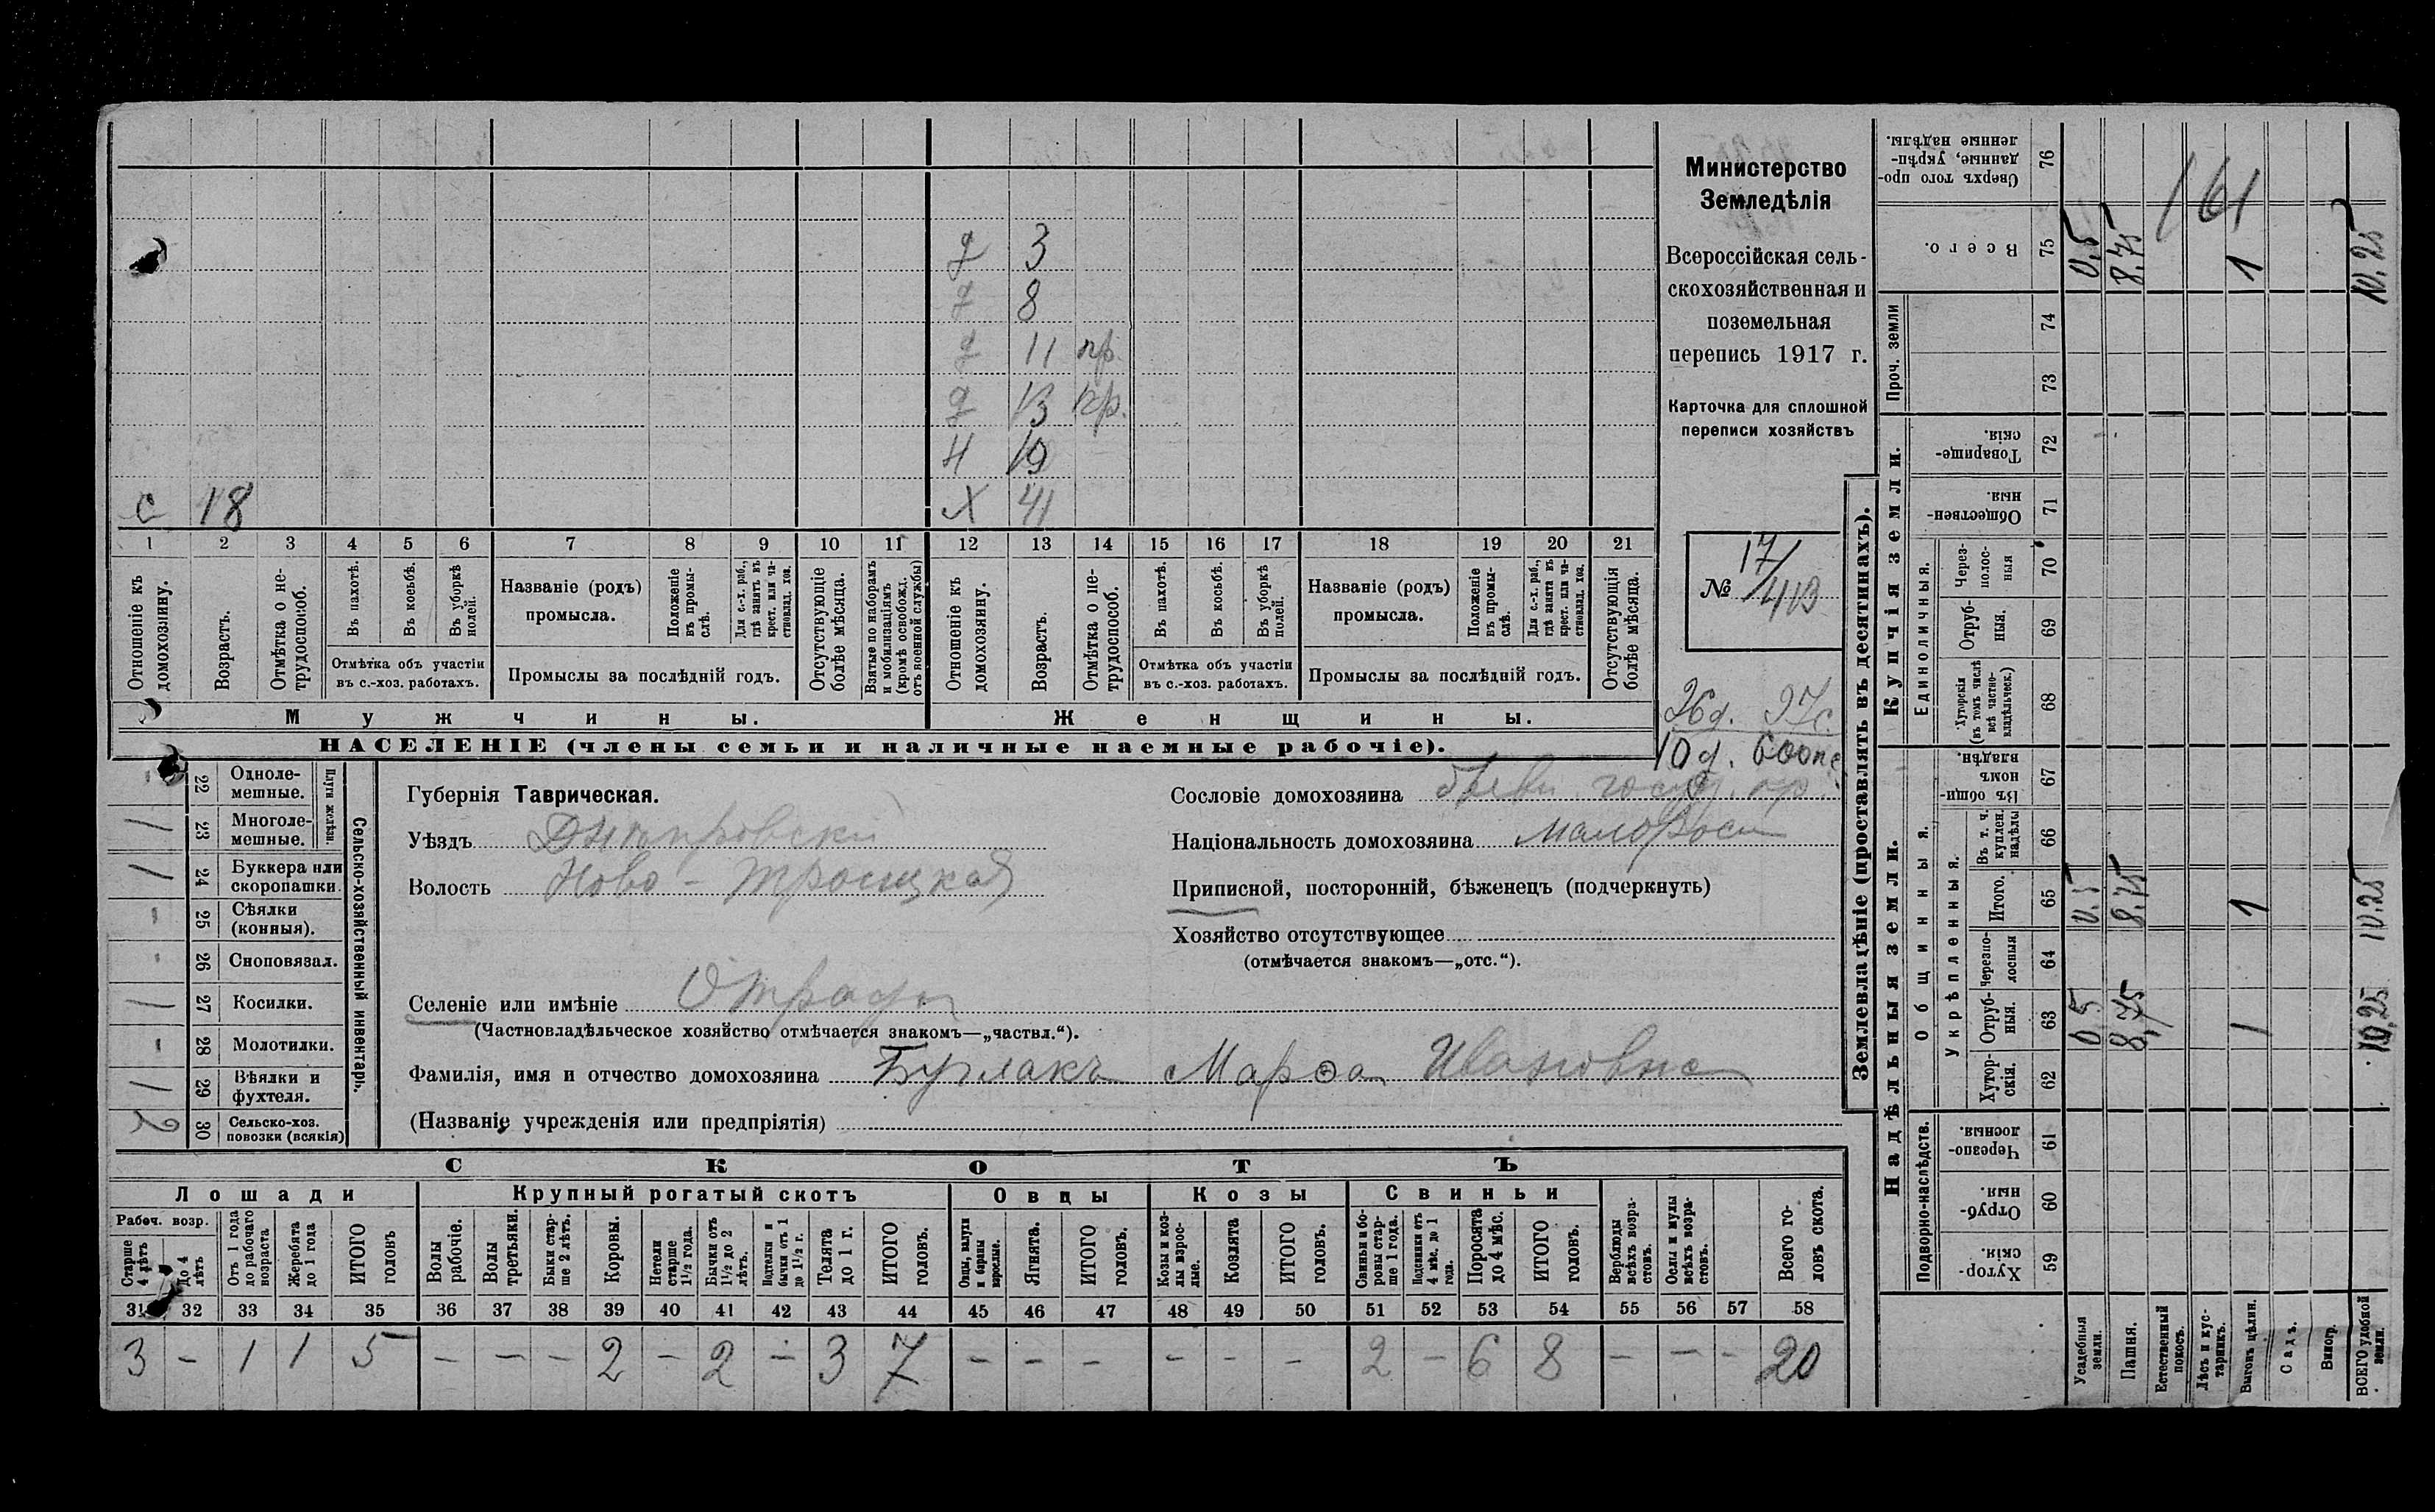 Министерство
Земледѣлія
Всероссійская сель-
скохозяйственная и
поземельная
перепись 1917 г.
Карточка для сплошной
переписи хозяйствъ
№ 17/413
26д. 27с.
10д. 600
д 3
д 8
д 11 пр.
д 13 пр.
Н 19
с 18 Х 41
1 2 3 4 5 6 7 8 9 10 11 12 13 14 15 16 17 18 19 20 21
Отношеніе къ домохозяину.
Возрастъ.
Отмѣтка о не-трудоспособ.
Въ пахотѣ.
Въ косьбѣ.
Въ уборкѣ полей.
Отмѣтка объ участіи
въ с.-хоз. работахъ.
Названіе (родъ)
промысла.
Положеніе въ промы-слѣ.
Для с.-х. раб., гдѣ занятъ въ крест. или ча-стновлад. хоз.
Промыслы за послѣдній годъ.
Отсутствующіе болѣе мѣсяца.
Взятые по наборамъ и мобилизаціямъ (кромѣ освобожд. отъ военной службы)
Отношеніе къ домохозяину.
Возрастъ.
Отмѣтка о не-трудоспособ.
Въ пахотѣ.
Въ косьбѣ.
Въ уборкѣ полей.
Отмѣтка объ участіи
въ с.-хоз. работахъ.
Названіе (родъ)
промысла.
Положеніе въ промы-слѣ.
Для с.-х. раб., гдѣ занята въ крест. или ча-стновлад. хоз.
Промыслы за послѣдній годъ.
Отсутствующія болѣе мѣсяца.
Мужчины. Женщины.
НАСЕЛЕНІЕ (члены семьи и наличные наемные рабочіе).
Сельско-хозяйственный инвентарь.
Плуги желѣзн.
- 22 Одноле-мешные.
1 23 Многоле-мешные.
1 24 Буккера или скоропашки.
- 25 Сѣялки (конныя).
- 26 Сноповязал.
1 27 Косилки.
- 28 Молотилки.
1 29 Вѣялки и фухтеля.
2 30 Сельско-хоз. повозки (всякія)
Губернія Таврическая.
Уѣздъ Днѣпровскій
Волость Ново-Троицкая
Селеніе или имѣніе Отрада
(Частновладѣльческое хозяйство отмѣчается знакомъ—„частвл.“).
Фамилія, имя и отчество домохозяина Бурлакъ Марѳа Ивановна
(Названіе учрежденія или предпріятія)
Сословіе домохозяина госуд. кр.
Національность домохозяина малоросс
Приписной, посторонній, бѣженецъ (подчеркнуть)
Хозяйство отсутствующее
(отмѣчается знакомъ—„отс.“).
СКОТЪ
Лошади Крупный рогатый скотъ Овцы Козы Свиньи
Рабоч. возр.
Старше 4 лѣтъ
До 4 лѣтъ
Отъ 1 года до рабочаго возраста
Жеребята до 1 года
ИТОГО головъ
Волы рабочіе.
Волы третьяки.
Быки стар-ше 2 лѣтъ.
Коровы.
Нетели старше 1½ года.
Бычки отъ 1½ до 2 лѣтъ.
Подтелки и бычки отъ 1 до 1½ г.
Телята до 1 г.
ИТОГО головъ.
Овцы, валухи и бараны взрослые.
Ягнята.
ИТОГО головъ.
Козы и коз-лы взрос-лые.
Козлята
ИТОГО головъ.
Свиньи и бо-ровы стар-ше 1 года.
Подсвинки отъ 4 мѣс. до 1 года.
Поросята до 4 мѣс.
ИТОГО головъ.
Верблюды всѣхъ возра-стовъ.
Ослы и мулы всѣхъ возра-стовъ.
Всего го-ловъ скота.
31 32 33 34 35 36 37 38 39 40 41 42 43 44 45 46 47 48 49 50 51 52 53 54 55 56 57 58
3 - 1 1 5 - - - 2 - 2 - 3 7 - - - - - - 2 - 6 8 - - - 20
Землевладѣніе (проставлять въ десятинахъ).
Надѣльныя земли. Купчія земли.
Подворно-наслѣдств.
Общинныя.
Укрѣпленныя.
Единоличныя.
Проч. земли
59 Хутор-скія.
60 Отруб-ныя.
61 Черезпо-лосныя.
62 Хутор-скія.
63 Отруб-ныя.
64 Черезпо-лосныя
65 Итого.
66 Въ т. ч. куплен. надѣлы
67 Въ общин-номъ владѣн.
68 Хуторскія (въ томъ числѣ всѣ частно-владѣльческ.)
69 Отруб-ныя.
70 Через-полос-ныя
71 Обществен-ныя.
72 Товарище-скія.
73
74
75 Всего.
76 Сверхъ того про-данные, укрѣп-ленные надѣлы.
Усадебныя земли. 0,5 0,5 0,5
Пашня. 8,75 8,75 8,75
Естественный покосъ.
Лѣсъ и кус-тарникъ.
Выгонъ цѣлин. 1 1 1
Садъ.
Виногр.
ВСЕГО удобной земли. 10,25 10,25 10,25
161